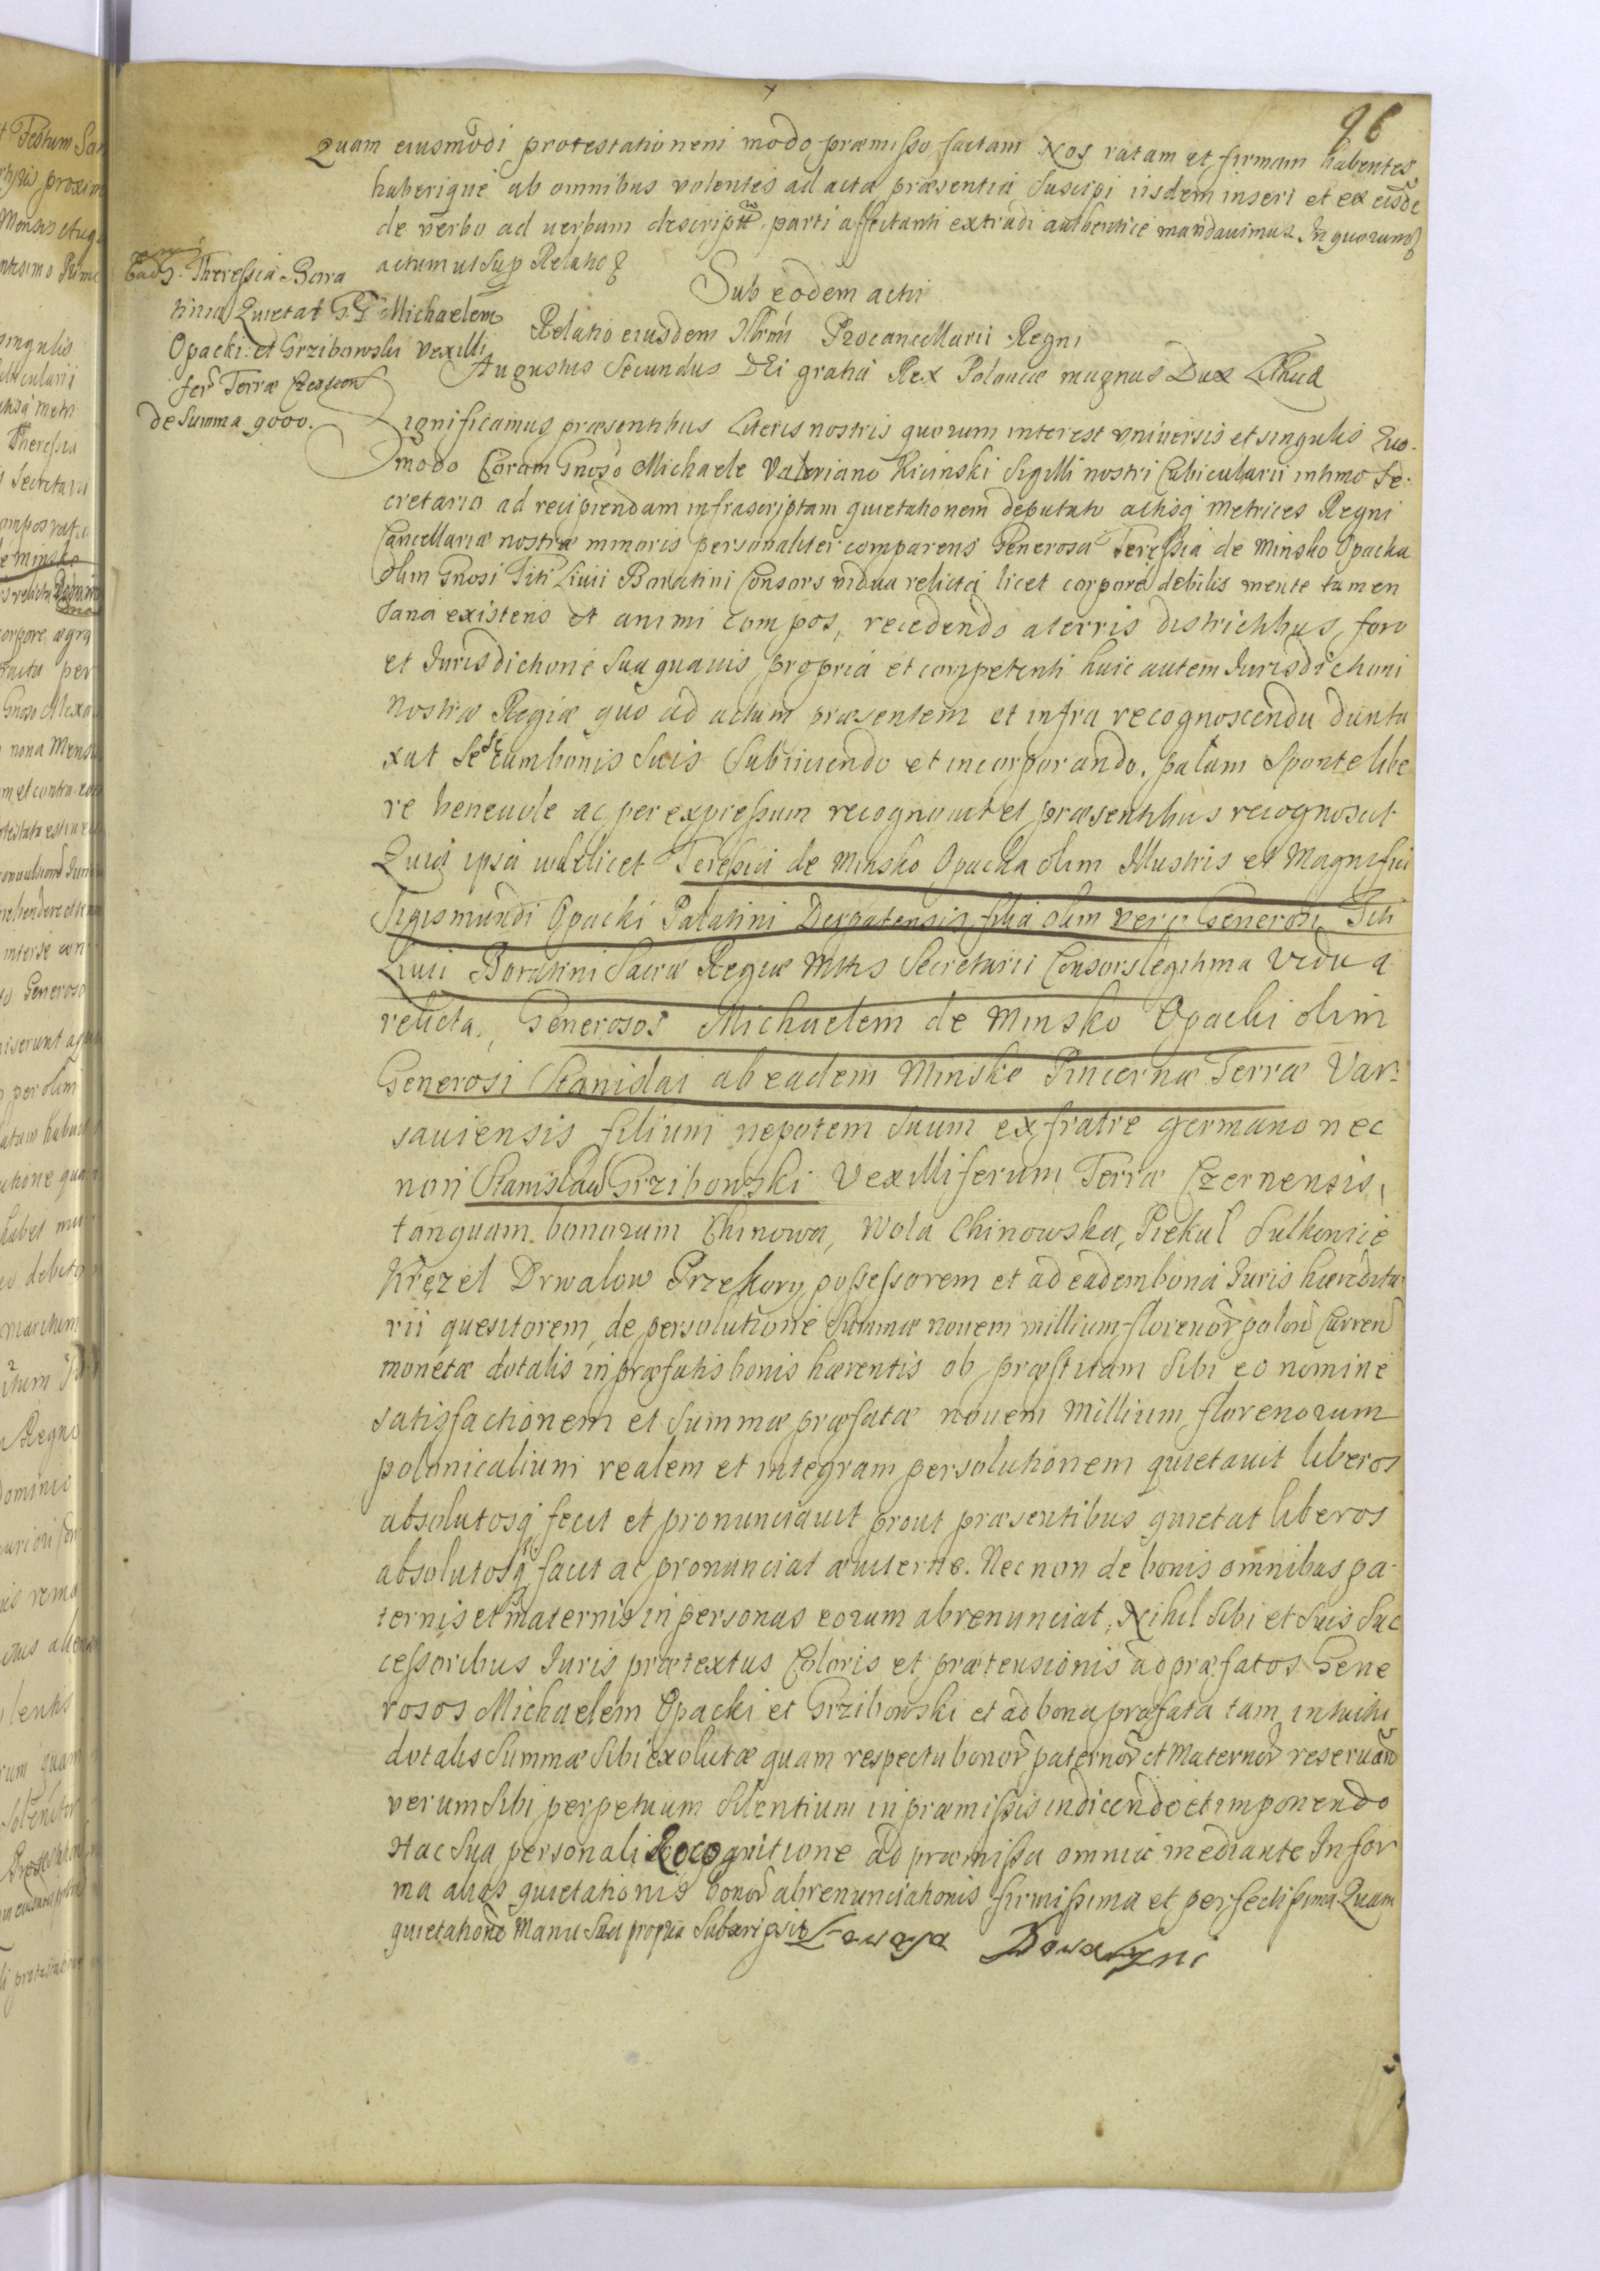 96
Quam eiusmodi protestationem modo præmisso factam Nos ratam et firmam habentes,
haberique ab omnibus volentes ad acta præsentia suscipi iisdem inseri et ex eisde
de verbo ad verbum descriptu parti affectanti extradi authentice mandauimus In quorum
actum ut sup Relatio
Sub eodem actu
Theressia Bora
tinia Quietat GG Michaelem
Opacki et Grzibowski vexilli
fer Terræ Czernen
de Summa 9000.
Relatio eiusdem Procancellarii Regni
Augustus Secundus DEi gratia Rex Poloniæ magnus Dux Lithua
Significamus præsentibus Literis nostris quorum interest vniuersis et singulis Quo-
modo Coram Gnoso Michaele Valeriano Kicinski Sigilli nostri Cubiculario intimo Se-
cretario ad recipiendam infrascriptam quietationem deputato actisq Metrices Regni
Cancellariæ nostræ minoris personaliter comparens Generosa Teressia de Minsko Opacka
olim Gnosi Titi Liuii Boratini Consors vidua relicta licet corpore debilis mente tamen
sana existens et animi compos, recedendo a terris districtibus, foro
et Jurisdictione sua quauis propria et competenti huic autem Jurisdictioni
nostræ Regiæ quo ad actum præsentem et infra recognoscenda dunta
xat se cum bonis suis subiiciendo et incorporando, palam sponte libe
re beneuole ac per expressum recognouit et præsentibus recognoscit
Quia ipsa videlicet Teressia de Minsko Opacka olim Illustris et Magnifici
Sigismundi Opacki Palatini Derpatensis filia olim vero Generosi Titi
Liuii Boratini Sacræ Regiæ Mttis Secretarii Consors legitima vidua
relicta, Generosos Michaelem de Minsko Opacki olim
Generosi Stanislai ab eadem Minsko Pincernæ Terræ Var-
sauiensis filium nepotem suum ex fratre germano nec
non Stanislaw Grzibowski Vexilliferum Terræ Czernensis,
tanquam bonorum Chinowa, Wola Chinowska, Piekul Sulkowice
Krezel Drwalow Przekory possessorem et ad eadem bona Juris hæredita
rii quesitorem, de persolutione Summæ nouem millium florenor polon Curren
monetæ dotalis in præfatis bonis hærentis ob præstitam sibi eo nomine
satisfactionem et Summæ præfatæ nouem Millium florenorum
polonicalium realem et integram persolutionem quietauit liberos
absolutosq fecit et pronunciauit prout præsentibus quietat liberos
absolutosq facit ac pronunciat æuiterne. Nec non de bonis omnibus pa-
ternis et maternis in personas eorum abrenunciat, Nihil sibi et suis suc
cessoribus Juris prætextus Coloris et prætensionis ad præfatos Gene
rosos Michaelem Opacki et Grzibowski et ad bona præfata tam intuitu
dotalis Summæ sibi exolutæ quam respectu bonor paternor et Maternor reseruan
verum sibi perpetuum silentium in præmissis indicendo et imponendo
Hac sua personali Recognitione ad præmissa omnia mediante In for
ma alias quietationis bonor abrenunciationis firmissima et perfectissima Quam
quietatione Manu sua propria subscripsit Boratyni